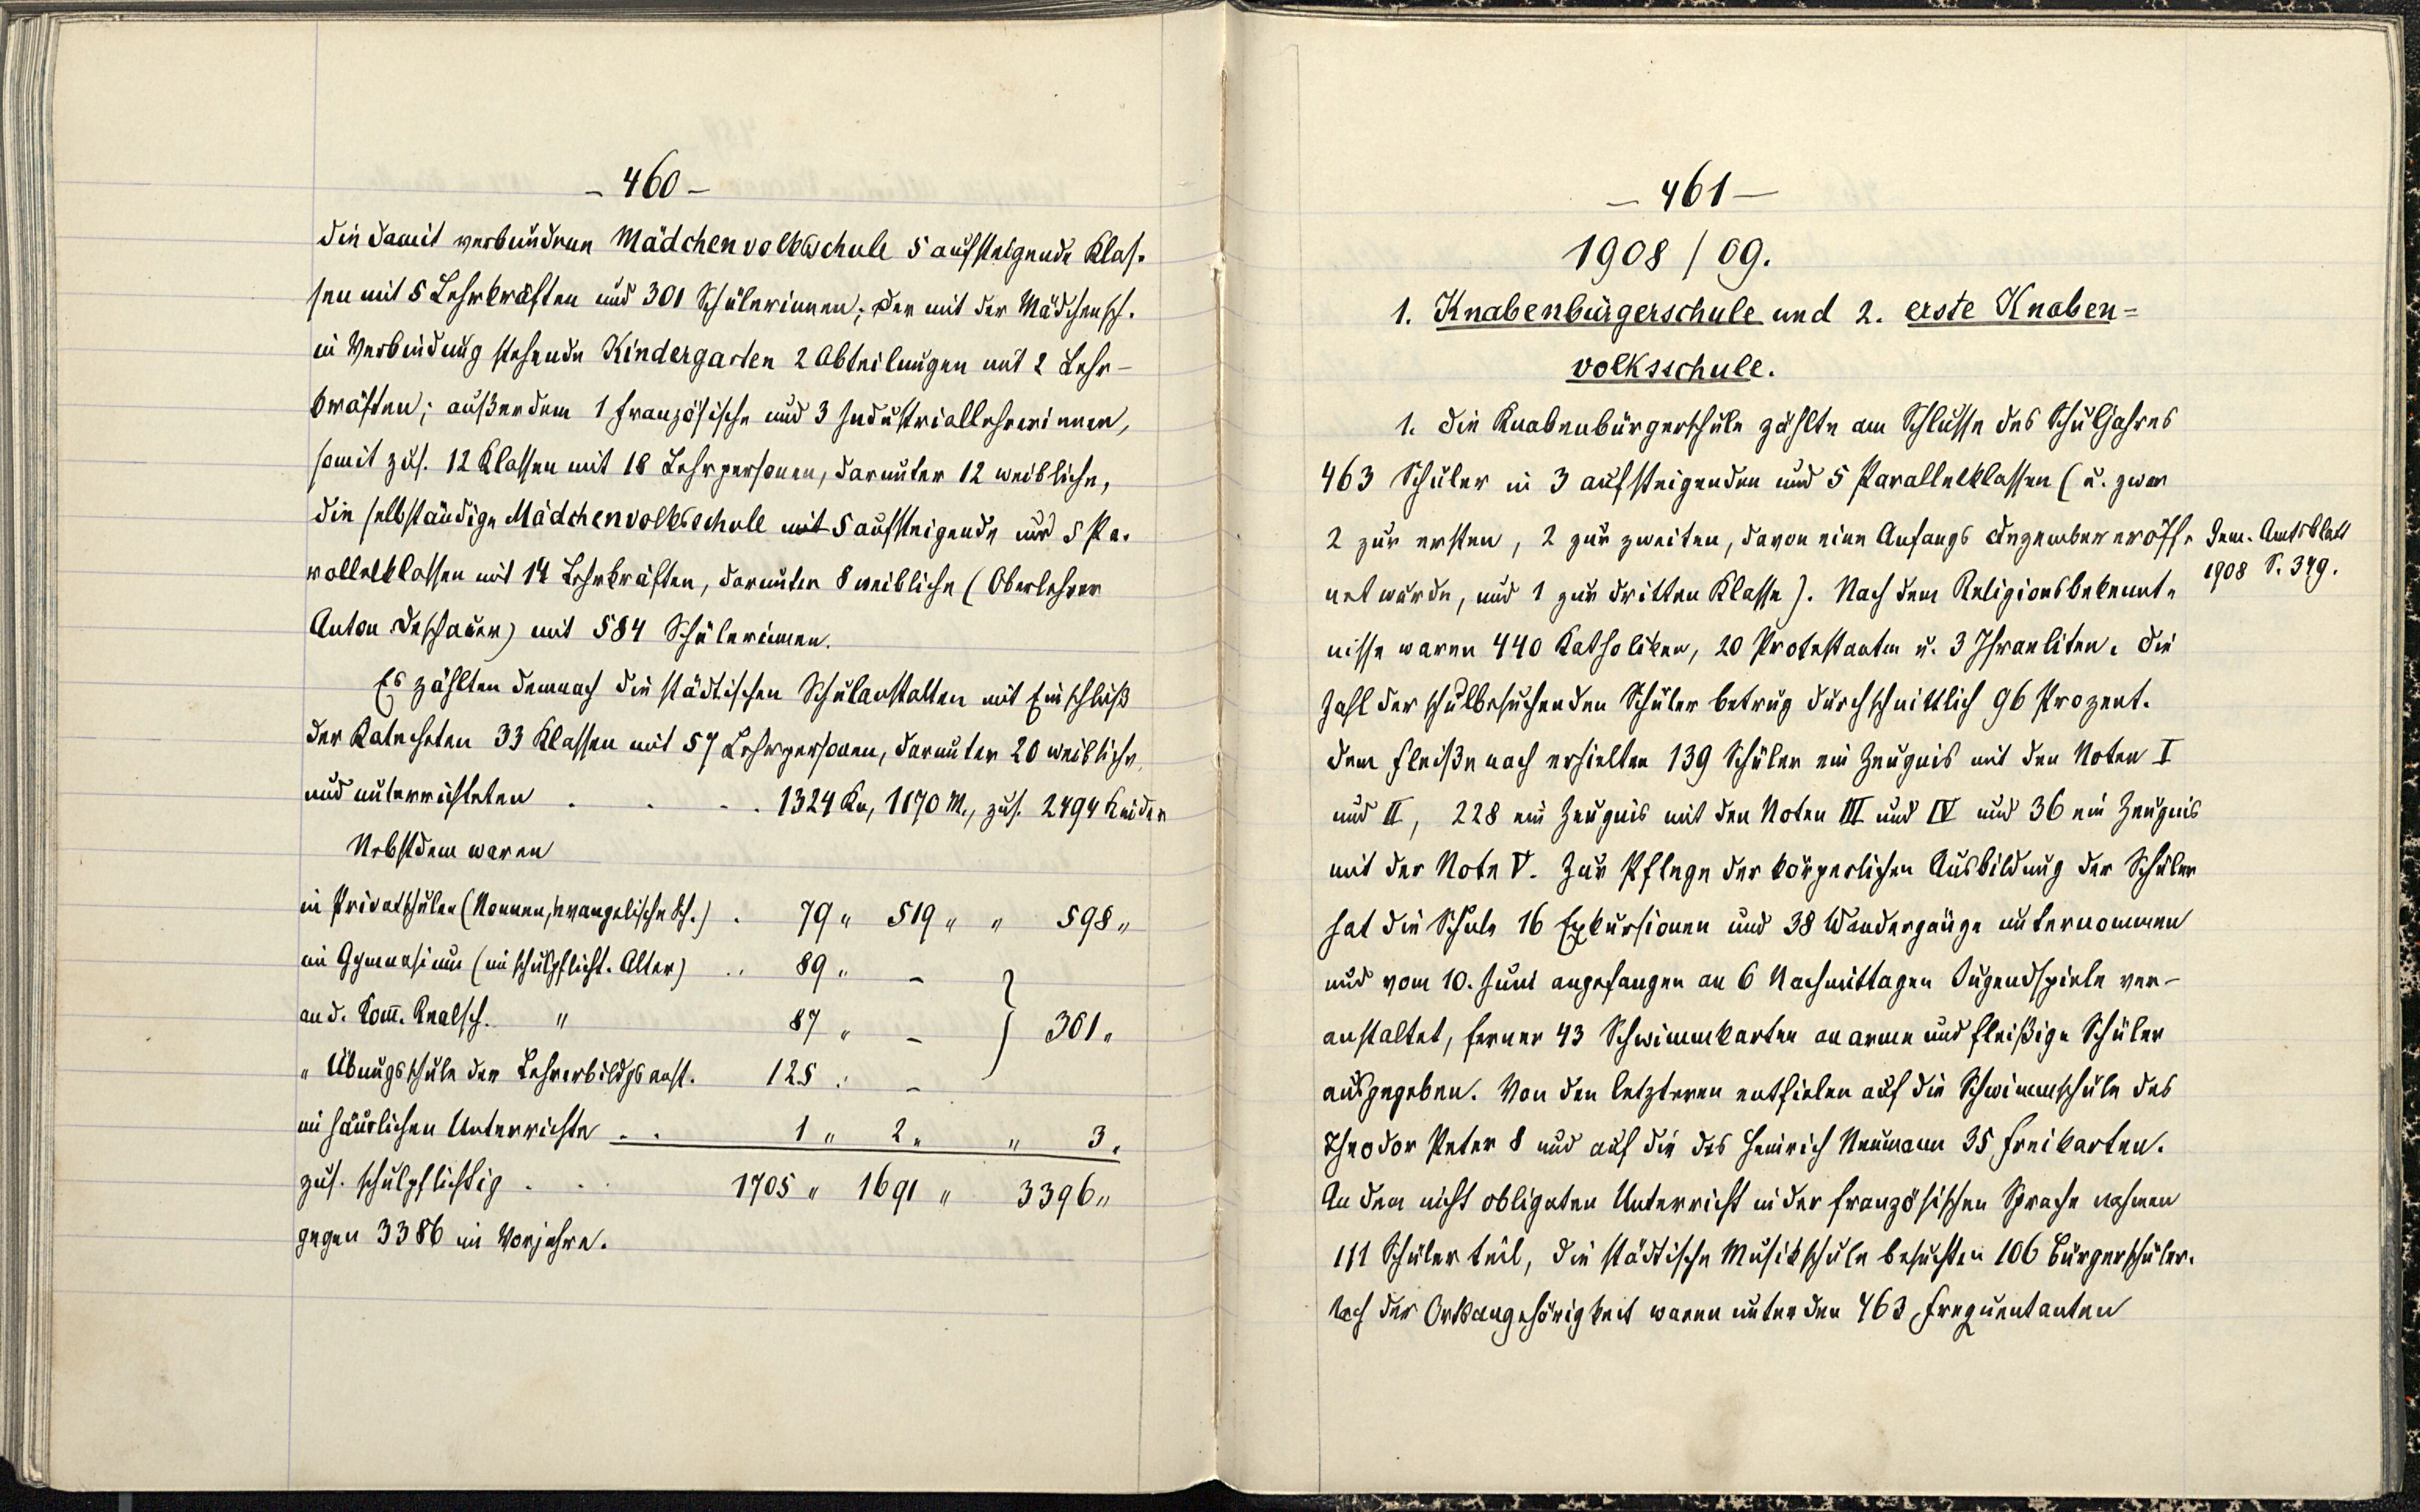 - 460 -
die damit verbundene Mädchenvolksschule 5 aufsteigende Klas-
sen mit 5 Lehrkräften und 301 Schülerinnen; der mit der Mädchensch.
in Verbindung stehende Kindergarten 2 Abteilungen mit 2 Lehr-
kräften; außerdem 1 französische und 3 Industriallehrerinnen,
somit zus. 12 Klassen mit 18 Lehrpersonen, darunter 12 weibliche,
die selbständige Mädchenvolksschule mit 5 aufsteigende und 5 Pa-
rallelklassen mit 14 Lehrkräften, darunter 8 weibliche (Oberlehrer
Anton Deschauer) mit 584 Schülerinnen.
Es zählten demnach die städtischen Schulanstalten mit Einschluß
der Katecheten 33 Klassen mit 57 Lehrpersonen, darunter 20 weibliche,
und unterrichteten . . . . 1324 Kn, 1170 M., zus. 2494 Kinder
Nebstdem waren
in Privatschulen (Nonnen, evangelische Sch.) . 79 " 519 " " 598 "
im Gymnasium (im schulpflicht. Alter) .. 89 " -
an d. Komm. Realsch. " 87 " - } 301 "
" Übungsschule der Lehrerbildgsanst. 125 " -
im häuslichen Unterrichte . . 1 " 2 " " 3 "
zus. schulpflichtig . . . 1705 " 1691 " 3396 "
gegen 3386 im Vorjahre.
- 461 -
1908/09.
1. Knabenbürgerschule und 2. erste Knaben=
volksschule.
1. Die Knabenbürgerschule zählte am Schlusse des Schuljahres
463 Schüler in 3 aufsteigenden und 5 Parallelklassen (u. zwar
2 zur ersten, 2 zur zweiten, davon eine Anfangs Dezember eröff-
net wurde, und 1 zur dritten Klasse). Nach dem Religionsbekennt-
Gem. Amtsblatt
1908 S. 379.
nisse waren 440 Katholiken, 20 Protestanten u. 3 Israeliten. Die
Zahl der schulbesuchenden Schüler betrug durchschnittlich 96 Prozent.
Dem Fleiße nach erhielten 139 Schüler ein Zeugnis mit den Noten I
und II, 228 ein Zeugnis mit den Noten III und IV und 36 ein Zeugnis
mit der Note V. Zur Pflege der körperlichen Ausbildung der Schüler
hat die Schule 16 Exkursionen und 38 Wandergänge unternommen
und vom 10. Juni angefangen an 6 Nachmittagen Jugendspiele ver-
anstaltet, ferner 43 Schwimmkarten an arme und fleißige Schüler
ausgegeben. Von den letzteren entfielen auf die Schwimmschule des
Theodor Peter 8 und auf die des Heinrich Neumann 35 Freikarten.
An dem nicht obligaten Unterricht in der französischen Sprache nahmen
111 Schüler teil, die städtische Musikschule besuchten 106 Bürgerschüler.
Nach der Ortsangehörigkeit waren unter den 463 Frequentanten